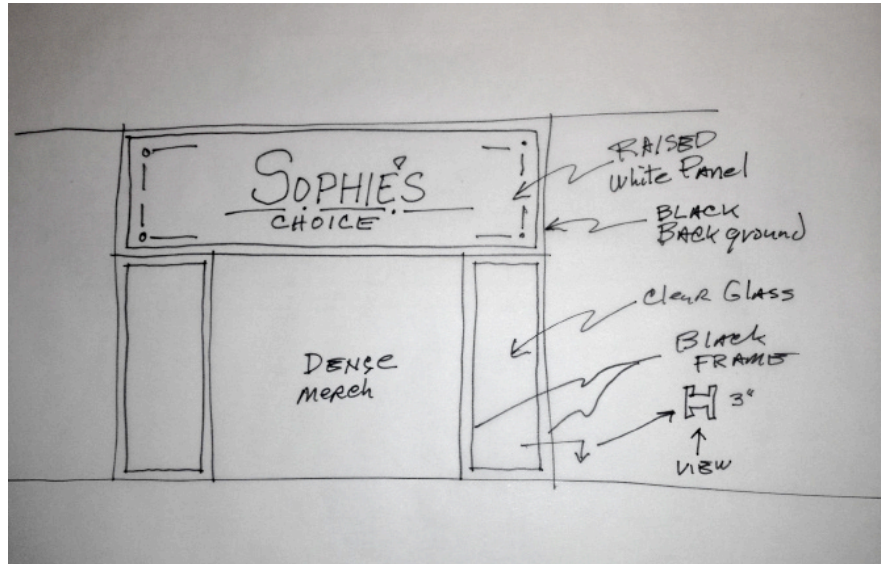 SOPHIE'S
CHOICE
RAISED
White Panel
BLACK
Background
Clear Glass
Black
FRAME
3"
VIEW
DENSE
merch